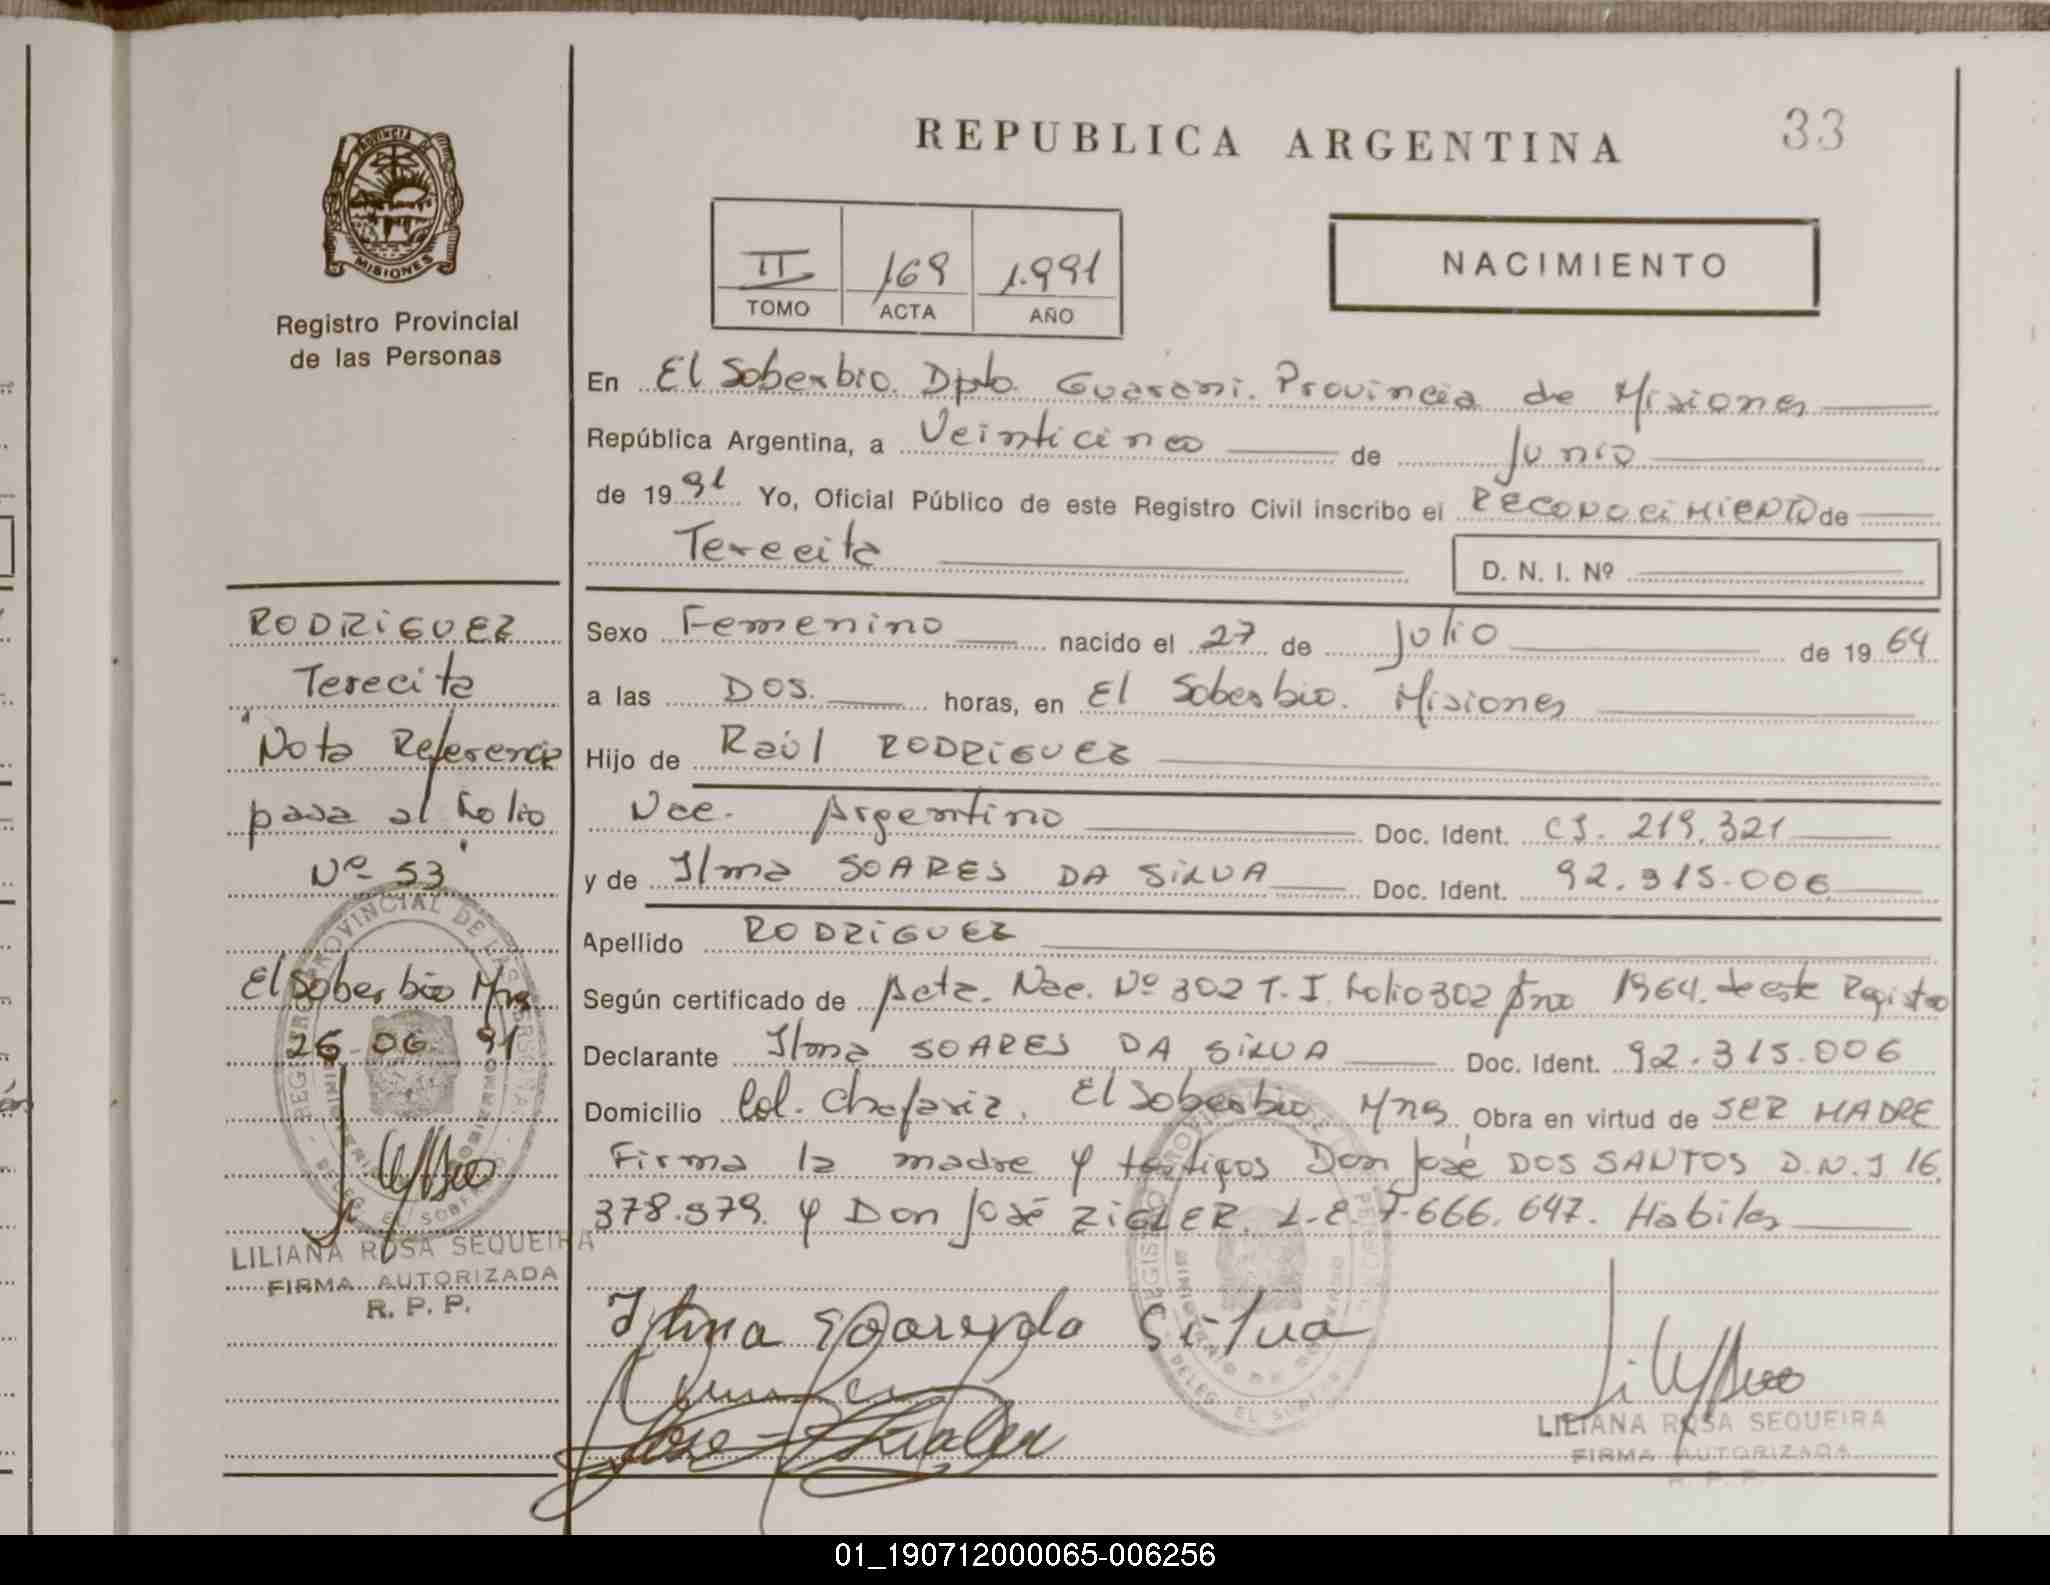 REPUBLICA ARGENTINA
33
PROVINCIA DE
MISIONES
Registro Provincial
de las Personas
II 169 1.991
TOMO ACTA AÑO
NACIMIENTO
En El Soberbio. Dpto. Guaraní. Provincia de Misiones
República Argentina, a Veinticinco de Junio
de 1991 Yo, Oficial Público de este Registro Civil inscribo el RECONOCIMIENTO de
Terecita
D. N. I. Nº
Sexo Femenino nacido el 27 de Julio de 1964
a las DOS. horas, en El Soberbio. Misiones
Hijo de Raúl RODRIGUEZ
Nac. Argentino Doc. Ident. CI. 219.321
y de Ilma SOARES DA SILVA Doc. Ident. 92.315.006
Apellido RODRIGUEZ
Según certificado de Acta. Nac. Nº 302 T. I. Folio 302 Año 1964. de este Registro
Declarante Ilma SOARES DA SILVA Doc. Ident. 92.315.006
Domicilio Col. Chafariz. El Soberbio Mns. Obra en virtud de SER MADRE
Firma la madre y testigos Don José DOS SANTOS D.N.I 16.
378.579. y Don José ZIGLER. L.E. 7.666.647. Habiles
RODRIGUEZ
Terecita
"Nota Referencia
pasa al folio
Nº 53"
El Soberbio Mns
26 06 91
REGISTRO PROVINCIAL DE LAS PERSONAS
DELEG. EL SOBERBIO
LILIANA ROSA SEQUEIRA
FIRMA AUTORIZADA
R. P. P.
Ilma Soares da Silva
Jose Zigler
DELEG. EL SOBERBIO
LILIANA ROSA SEQUEIRA
FIRMA AUTORIZADA
R. P. P.
01_190712000065-006256